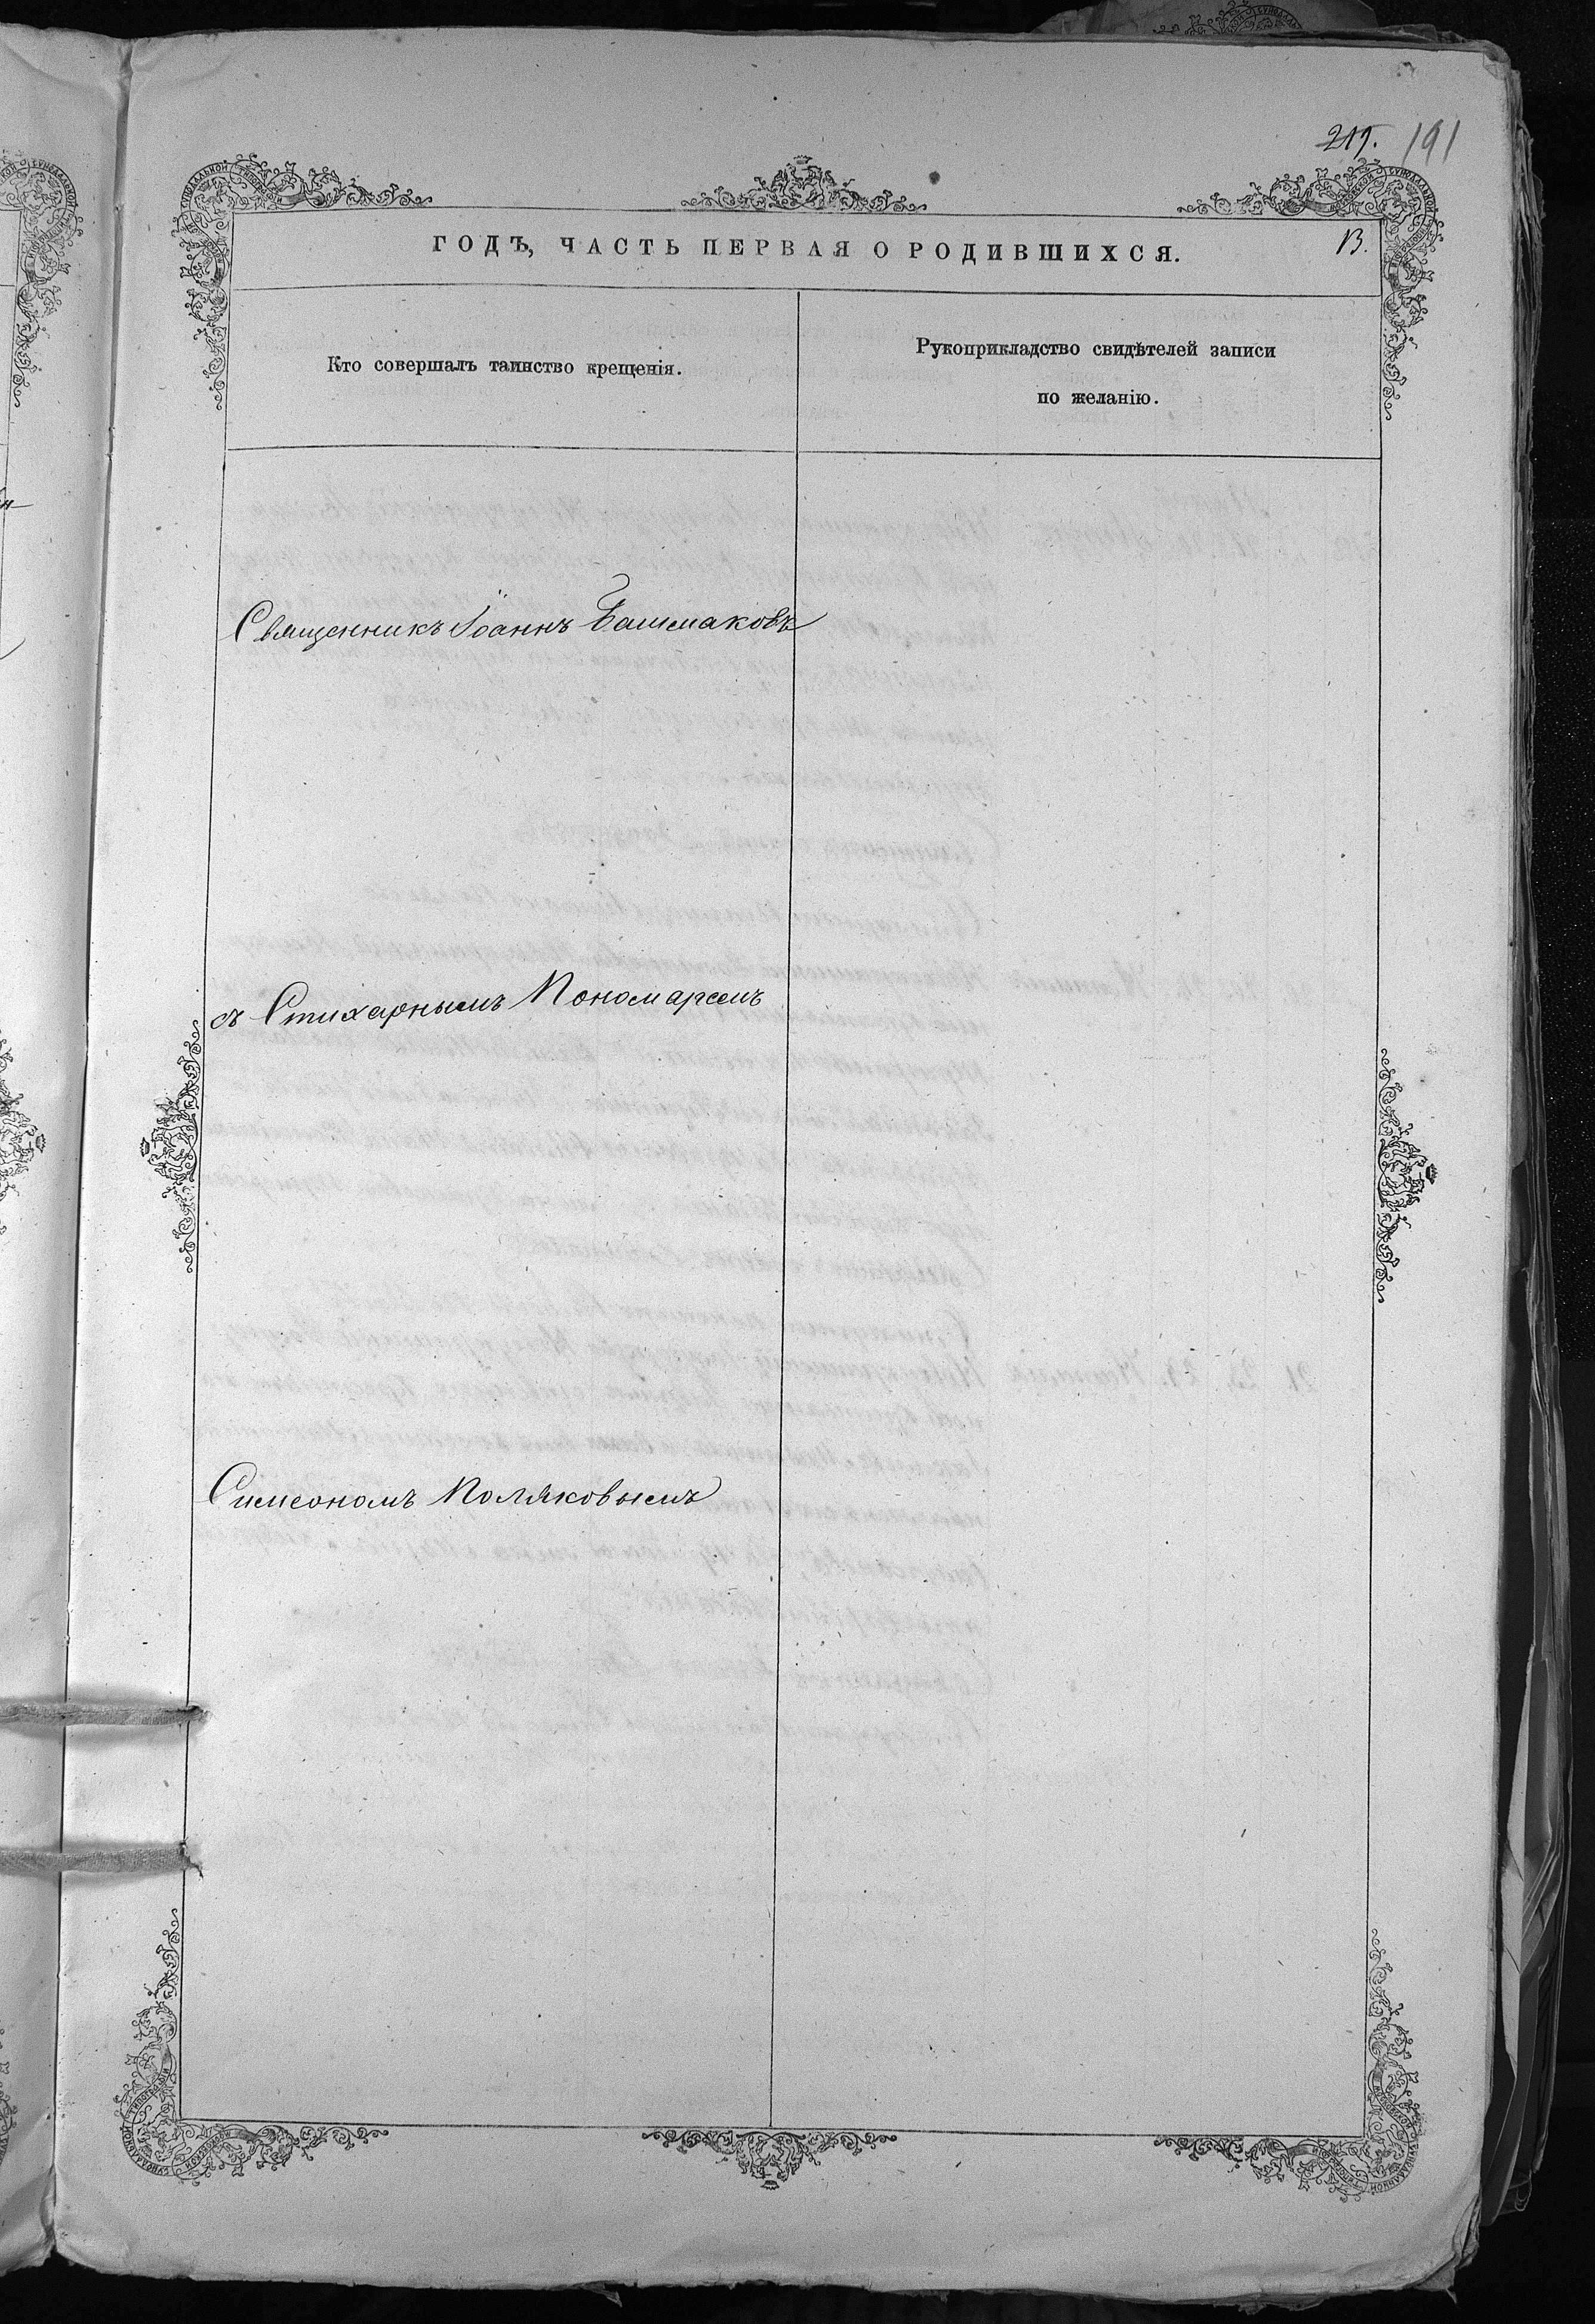 219. 191
ГОДЪ, ЧАСТЬ ПЕРВАЯ О РОДИВШИХСЯ.
13.
Кто совершалъ таинство крещенія.
Рукоприкладство свидѣтелей записи
по желанію.
Священникъ Іоаннъ Башмаковъ
съ Стихарнымъ Пономаремъ
Симеономъ Поляковымъ